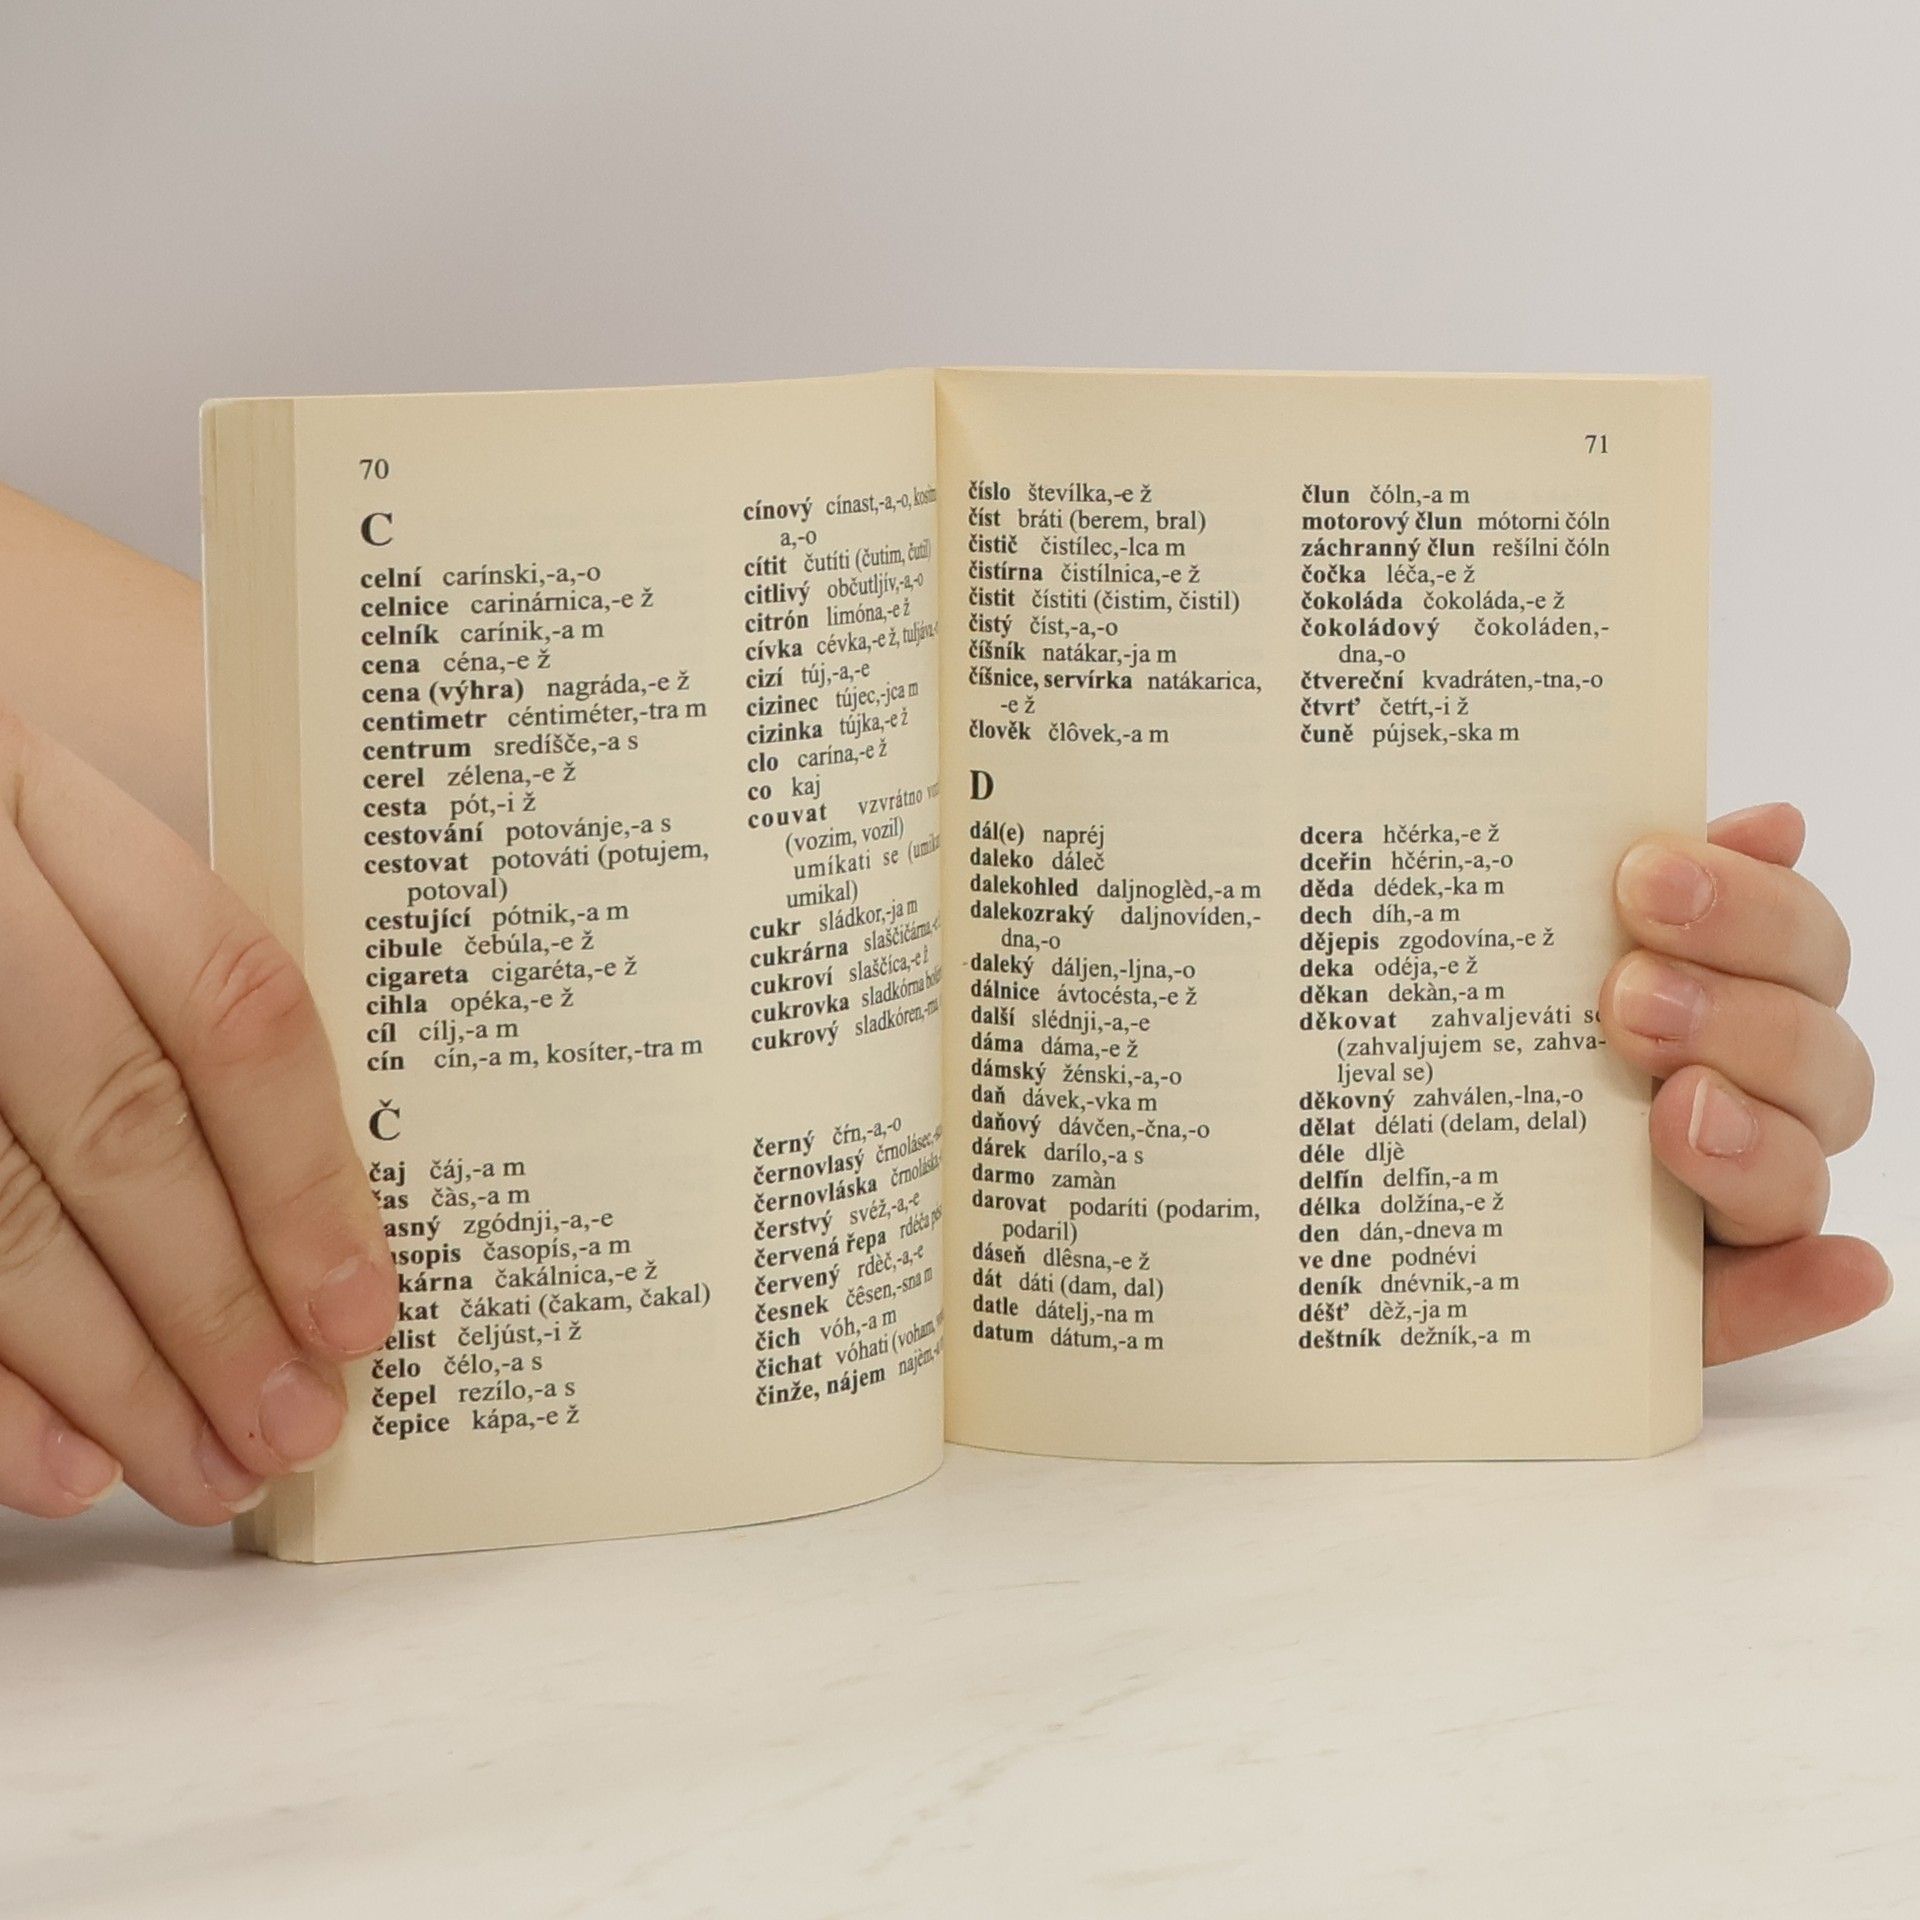 70
C
celní carínski,-a,-o
celnice carinárnica,-e ž
celník carínik,-a m
cena céna,-e ž
cena (výhra) nagráda,-e ž
centimetr céntiméter,-tra m
centrum sredíšče,-a s
cerel zélena,-e ž
cesta pót,-i ž
cestování potovánje,-a s
cestovat potováti (potujem,
potoval)
cestující pótnik,-a m
cibule čebúla,-e ž
cigareta cigaréta,-e ž
cihla opéka,-e ž
cíl cílj,-a m
cín cín,-a m, kosíter,-tra m
cínový cínast,-a,-o,
a,-o
cítit čutíti (čutim, čutil)
citlivý občutljív,-a,-o
citrón limóna,-e ž
cívka cévka,-e ž,
cizí túj,-a,-e
cizinec tújec,-jca m
cizinka tújka,-e ž
clo carína,-e ž
co kaj
couvat vzvrátno
(vozim, vozil)
umíkati se
umikal)
cukr sládkor,-ja m
cukrárna slaščičárna,
cukroví slaščíca,-e ž
cukrovka sladkórna
cukrový sladkóren,
Č
čaj čáj,-a m
čàs,-a m
zgódnji,-a,-e
časopís,-a m
čakálnica,-e ž
čákati (čakam, čakal)
čeljúst,-i ž
čelo čélo,-a s
čepel rezílo,-a s
čepice kápa,-e ž
černý čŕn,-a,-o
černovlasý črnolásec,
černovláska črnoláska
čerstvý svéž,-a,-e
červená řepa rdéča
červený rdèč,-a,-e
česnek čêsen,-sna m
čich vóh,-a m
čichat vóhati (voham,
činže, nájem najèm,
71
číslo števílka,-e ž
číst bráti (berem, bral)
čistič čistílec,-lca m
čistírna čistílnica,-e ž
čistit čístiti (čistim, čistil)
čistý číst,-a,-o
číšník natákar,-ja m
číšnice, servírka natákarica,
-e ž
člověk člôvek,-a m
člun čóln,-a m
motorový člun mótorni čóln
záchranný člun rešílni čóln
čočka léča,-e ž
čokoláda čokoláda,-e ž
čokoládový čokoláden,-
dna,-o
čtvereční kvadráten,-tna,-o
čtvrť četŕt,-i ž
čuně pújsek,-ska m
D
dál(e) napréj
daleko dáleč
dalekohled daljnoglèd,-a m
dalekozraký daljnovíden,-
dna,-o
daleký dáljen,-ljna,-o
dálnice ávtocésta,-e ž
další slédnji,-a,-e
dáma dáma,-e ž
dámský žénski,-a,-o
daň dávek,-vka m
daňový dávčen,-čna,-o
dárek darílo,-a s
darmo zamàn
darovat podaríti (podarim,
podaril)
dáseň dlêsna,-e ž
dát dáti (dam, dal)
datle dátelj,-na m
datum dátum,-a m
dcera hčérka,-e ž
dceřin hčérin,-a,-o
děda dédek,-ka m
dech díh,-a m
dějepis zgodovína,-e ž
deka odéja,-e ž
děkan dekàn,-a m
děkovat zahvaljeváti se
(zahvaljujem se, zahva-
ljeval se)
děkovný zahválen,-lna,-o
dělat délati (delam, delal)
déle dljè
delfín delfín,-a m
délka dolžína,-e ž
den dán,-dneva m
ve dne podnévi
deník dnévnik,-a m
déšť dèž,-ja m
deštník dežník,-a m